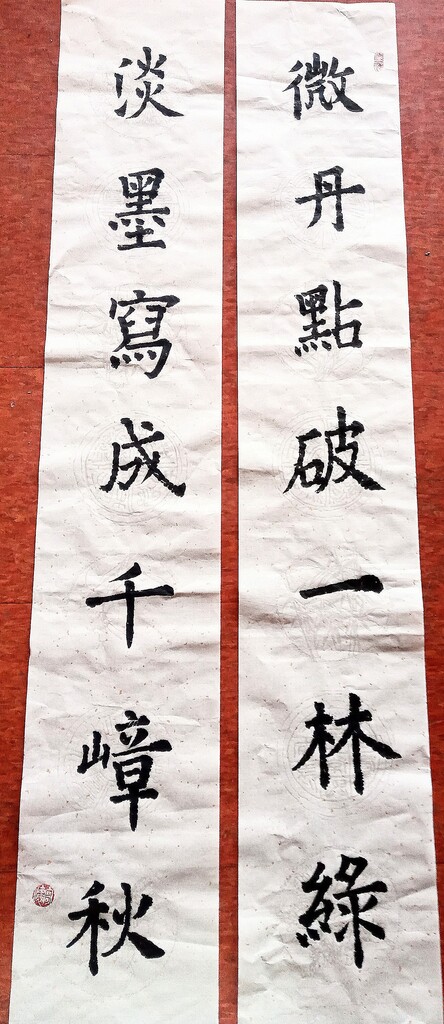 微丹點破一林綠
淡墨寫成千嶂秋